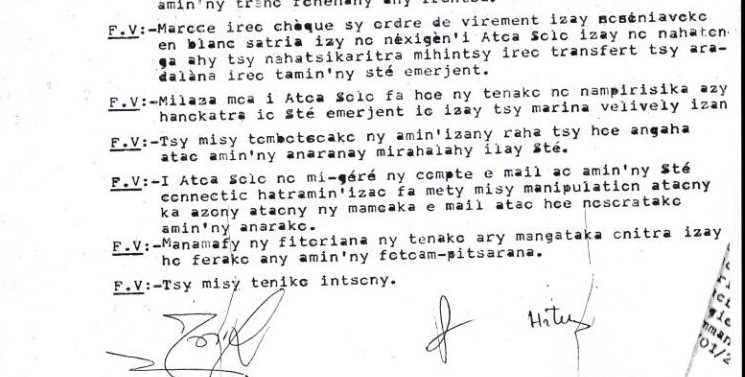 amin'ny trano fonenany any
F.V:-Marcce ireo chèque sy ordre de virement izay nosoniaveko
en blanc satria izy no nexigèn'i Atoa Solo izay no nahaton
ga ahy tsy nahatsikaritra mihintsy ireo transfert tsy ara-
dalàna ireo tamin'ny sté emerjent.
F.V:-Milaza moa i Atoa Solo fa hoe ny tenako no nampirisika azy
hanokatra io Sté emerjent io izay tsy marina velively izan
F.V:-Tsy misy tombotsoako ny amin'izany raha tsy hoe angaha
atao amin'ny anaranay mirahalahy ilay Sté.
F.V:-I Atoa Solo no mi-géré ny compte e mail ao amin'ny Sté
connectic hatramin'izao fa mety misy manipulation ataony
ka azony ataony ny mamoaka e mail atao hoe nosoratako
amin'ny anarako.
F.V:-Manamafy ny fitoriana ny tenako ary mangataka onitra izay
ho ferako any amin'ny fotoam-pitsarana.
F.V:-Tsy misy teniko intsony.
01/2